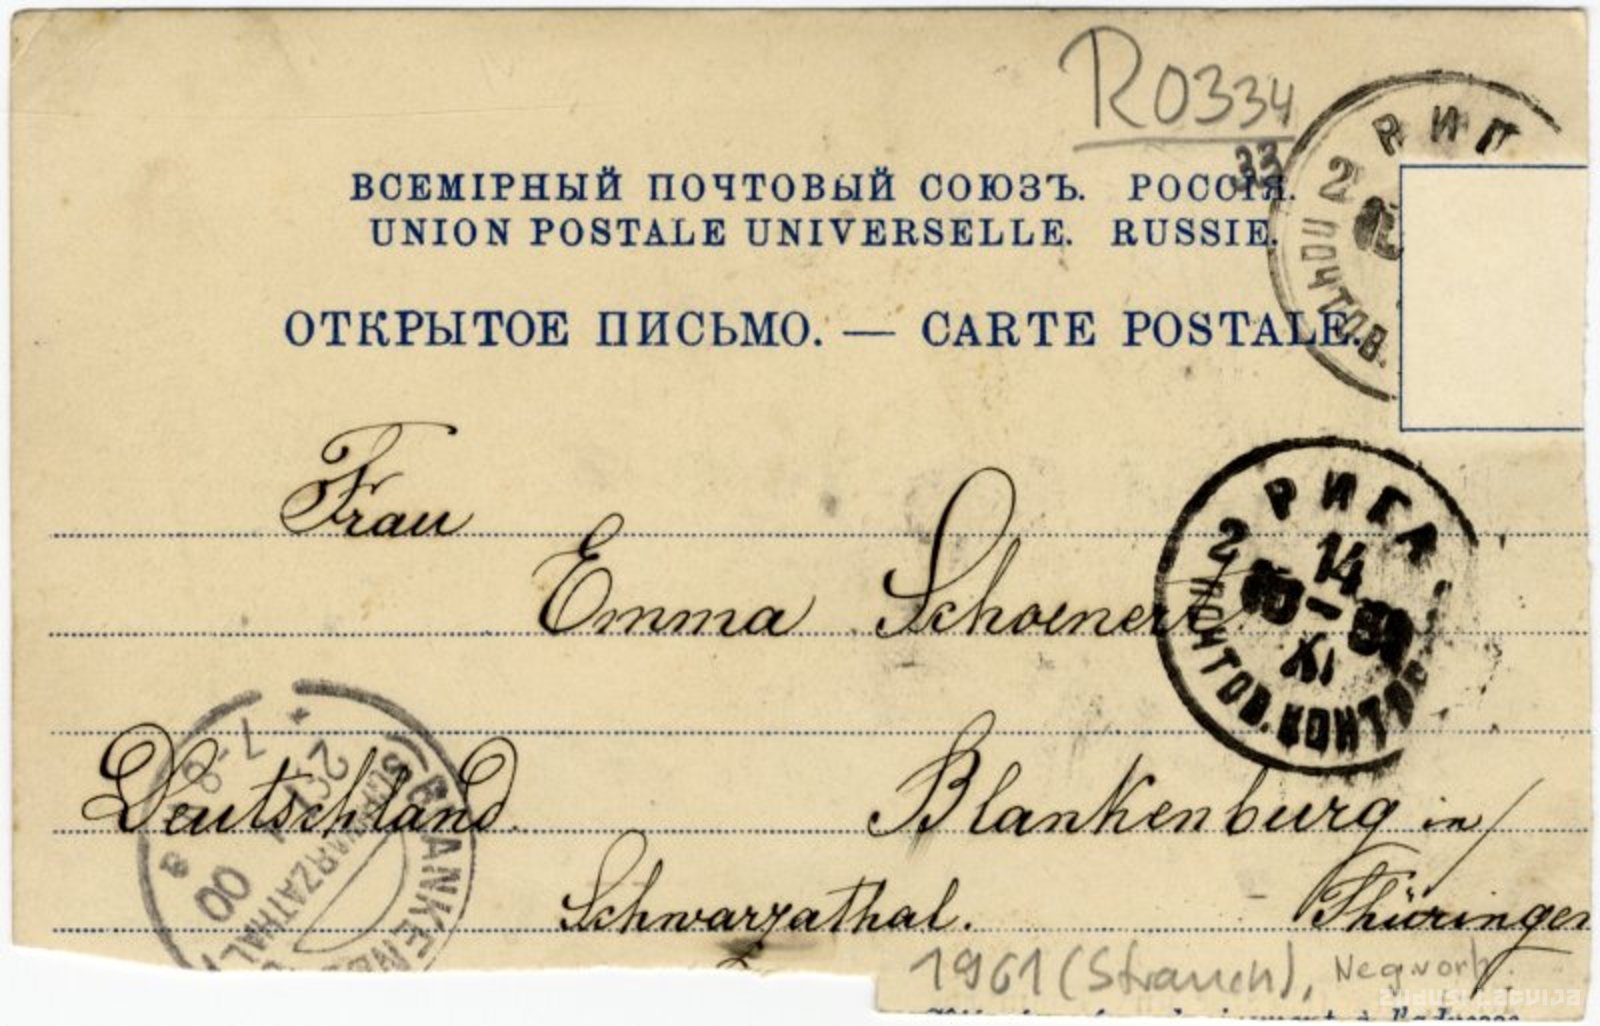 R0334
33
ВСЕМІРНЫЙ ПОЧТОВЫЙ СОЮЗЪ. РОССІЯ.
UNION POSTALE UNIVERSELLE. RUSSIE.
ОТКРЫТОЕ ПИСЬМО. — CARTE POSTALE.
РИГ
2
ПОЧТОВ.
Frau
Emma Schoenert
РИГА
2 14
XI
ПОЧТОВ. КОНТОР
Deutschland. Blankenburg in/
Schwarzathal. Thüringen
BLANKENB
SCHWARZATHAL
7-8
00
1961 (Strauch), Negvorh.
zudusi latvija